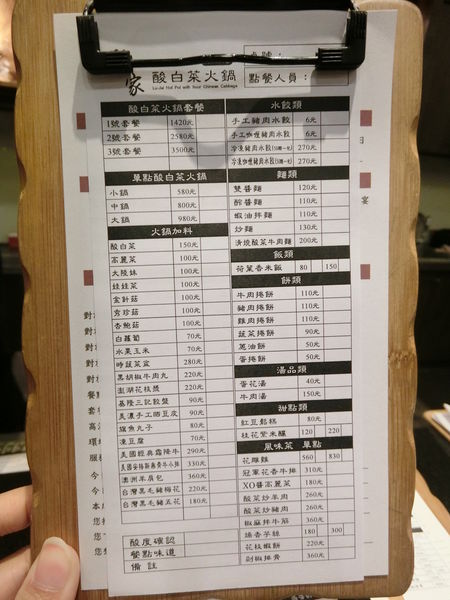 桌號：
點餐人員：
家 酸白菜火鍋
酸白菜火鍋套餐
1號套餐 1420元
2號套餐 2580元
3號套餐 3500元
單點酸白菜火鍋
小鍋 580元
中鍋 800元
大鍋 980元
火鍋加料
酸白菜 150元
高麗菜 100元
大陸妹 100元
娃娃菜 100元
金針菇 100元
秀珍菇 100元
杏鮑菇 100元
白蘿蔔 70元
水果玉米 70元
時蔬菜盤 280元
黑胡椒牛肉丸 220元
澎湖花枝漿 220元
基隆三記餃盤 90元
美濃手工晒豆皮 90元
旗魚丸子 80元
凍豆腐 70元
美國經典霜降牛 290元
330元
澳洲羊肩包 360元
台灣黑毛豬梅花 220元
台灣黑毛豬五花 180元
酸度確認
餐點味道
備註
水餃類
手工豬肉水餃 6元
手工咖哩豬肉水餃 6元
冷凍豬肉水餃 270元
冷凍咖哩豬肉水餃 270元
麵類
雙醬麵 120元
酢醬麵 110元
蝦油拌麵 110元
炒麵 130元
清燉酸菜牛肉麵 200元
飯類
荷葉香米飯 80 150
餅類
牛肉捲餅 110元
豬肉捲餅 110元
雞肉捲餅 110元
蔬菜捲餅 90元
蔥油餅 50元
蛋捲餅 50元
湯品類
蛋花湯 40元
牛肉湯 150元
甜點類
紅豆鬆糕 80元
桂花紫米釀 120 220
風味菜 單點
花雕雞 560 830
冠軍花香牛排 310元
XO醬高麗菜 180元
酸菜炒羊肉 260元
酸菜炒豬肉 260元
椒麻拌牛筋 360元
180 300
花枝蝦餅 260元
剁椒排骨 360元